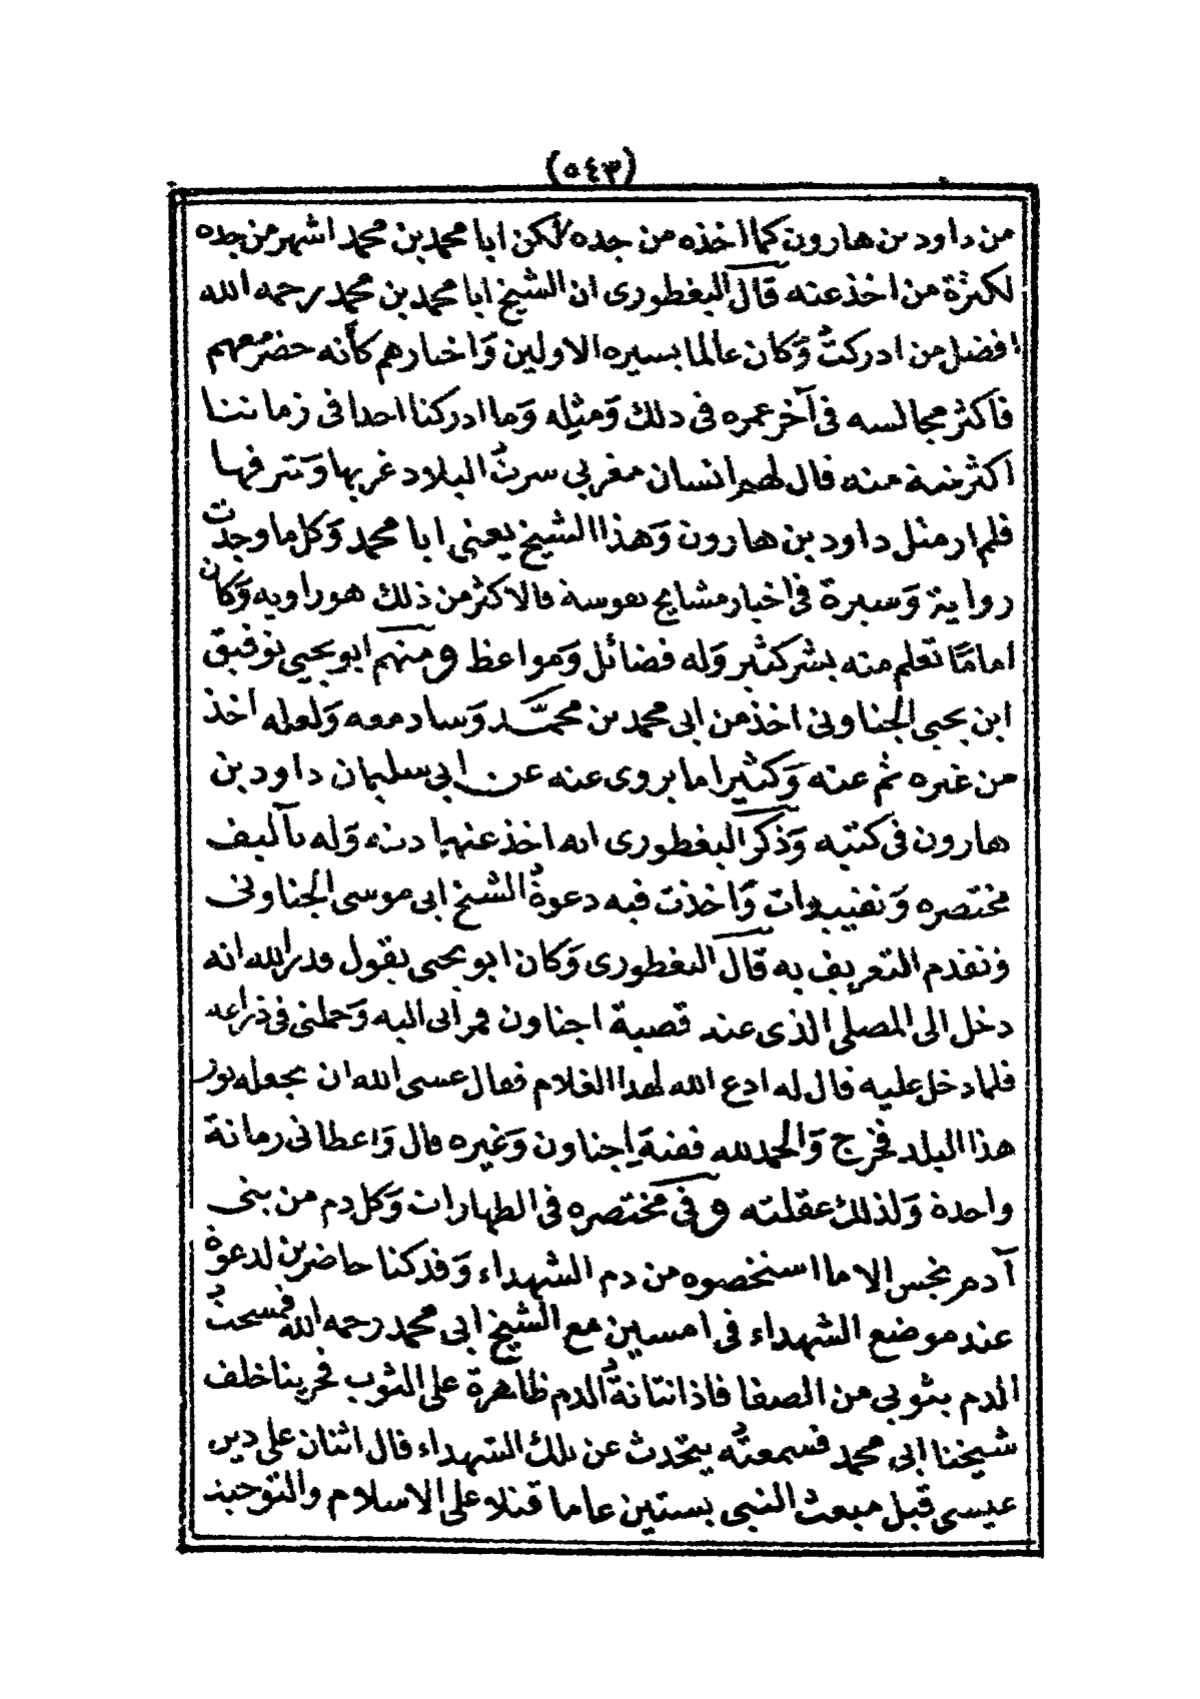 (٥٤٣)
من داود بن هارون كما اخذه من جده لكن ابا محمد بن محمد اشهر من جده
لكثرة من اخذ عنه قال البغطورى ان الشيخ ابا محمد بن محمد رحمه الله
افضل من ادركت وكان عالما بسيره الاولين وَاخبارهم كأنه حضر معهم
فاكثر مجالسه فى آخر عمره فى ذلك وَمثله وَما ادركنا احدا فى زماننا
اكثر منه قال لهم انسان مغربى سرت البلاد غربها وَشرقها
فلم ار مثل داود بن هارون وَهذا الشيخ يعنى ابا محمد وَكل ما وجدت
رواية وَسيرة فى اخبار مشايخ نفوسة فالاكثر من ذلك هو راويه وَكان
امامًا تعلم منه بشر كثير وَله فضائل وَمواعظ ومنهم ابو يحيى توفيق
ابن يحيى الجناونى اخذ من ابى محمد بن محمَّد وَساد معه وَلعله اخذ
من غيره ثم عنه وَكثيرا ما يروى عنه عن ابى سليمان داود بن
هارون فى كتبه وَذكر البغطورى انه اخذ عنهما دينه وَله تآليف
مختصره وَتقييدات وَاخذت فيه دعوة الشيخ ابى موسى الجناونى
وتقدم التعريف به قال البغطورى وَكان ابو يحيى يقول قدر الله انه
دخل الى المصلى الذى عند قصبة اجناون فمر أبى اليه وَحملنى فى ذراعه
فلما دخل عليه قال له ادع الله لهذا الغلام فقال عسى الله ان يجعله نور
هذا البلد فخرج وَالحمد لله فقيه اجناون وَغيره قال وَاعطانى رمانة
واحدة وَلذلك عقلته وفى مختصره فى الطهارات وَكل دم من بنى
آدم نجس الا ما استخصوه من دم الشهداء وَقد كنا حاضرين لدعوة
عند موضع الشهداء فى امسين مع الشيخ ابى محمد رحمه الله فمسحت
الدم بثوبى من الصفا فاذا نتانة الدم ظاهرة على الثوب فجرينا خلف
شيخنا ابى محمد فسمعته يتحدث عن تلك الشهداء قال اثنان على دين
عيسى قبل مبعث النبى بستين عاما قتلا على الاسلام والتوحيد